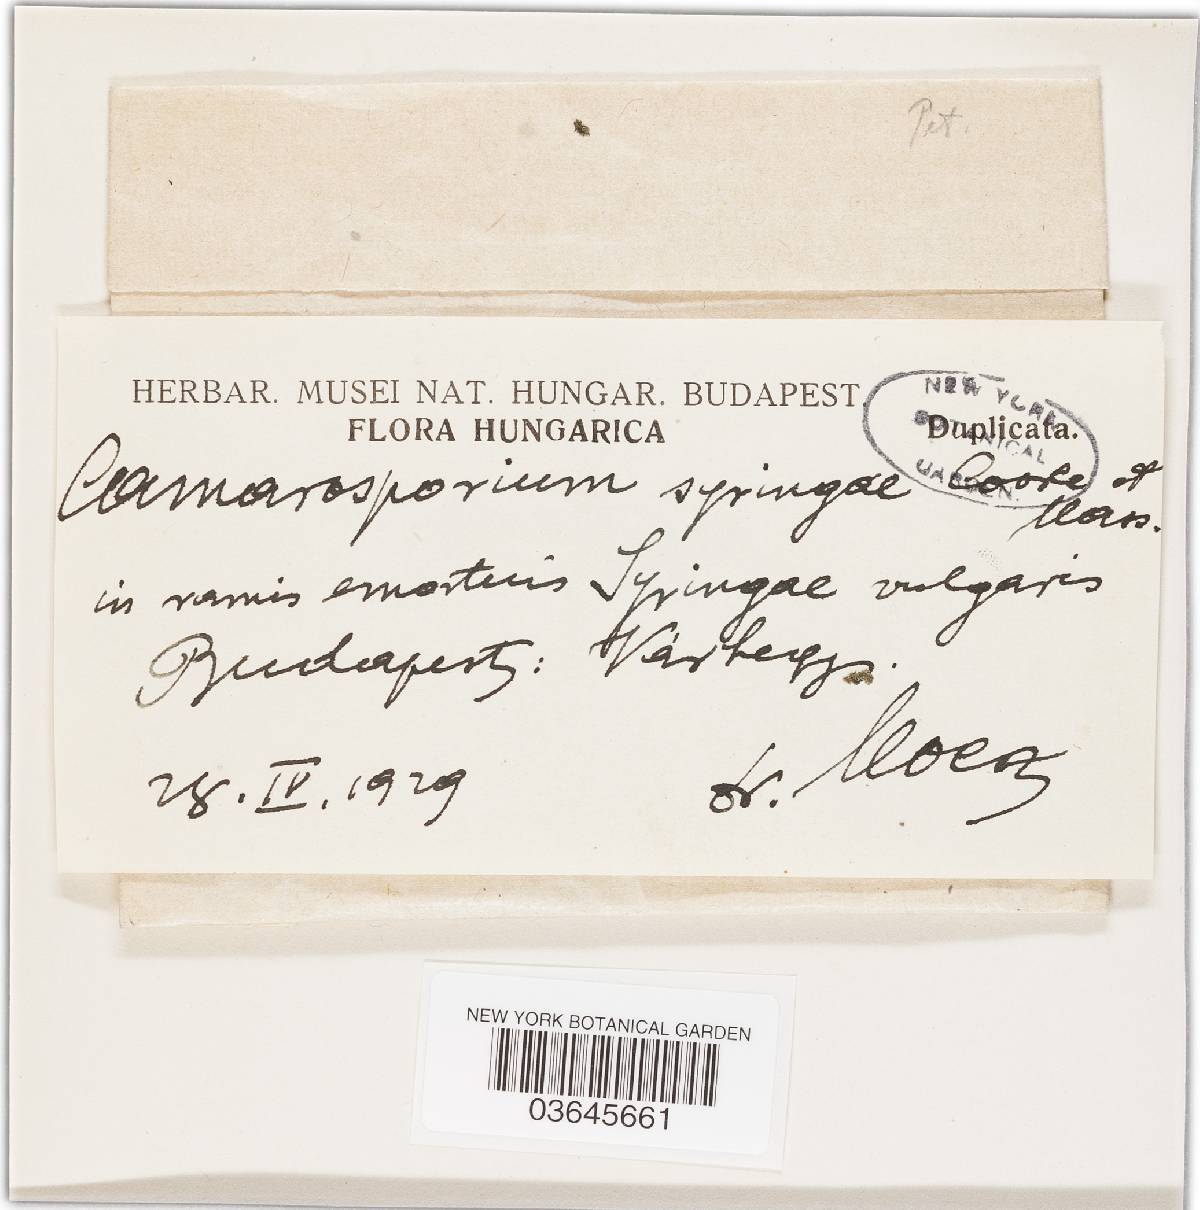 Pet.
HERBAR. MUSEI NAT. HUNGAR. BUDAPEST
FLORA HUNGARICA
Duplicata.
NEW YORK
BOTANICAL
GARDEN.
Camarosporium syringae Cooke et
Mass.
in ramis emortuis Syringae vulgaris
Budapest: Várhegy.
28. IV. 1929
dr. Moesz
NEW YORK BOTANICAL GARDEN
03645661